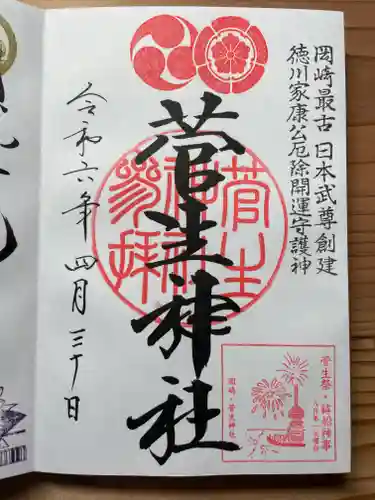 岡崎最古 日本武尊創建
徳川家康公厄除開運守護神
菅生神社
菅生神社参拝
令和六年 四月三十日
菅生祭・鉾船神事
岡崎・菅生神社